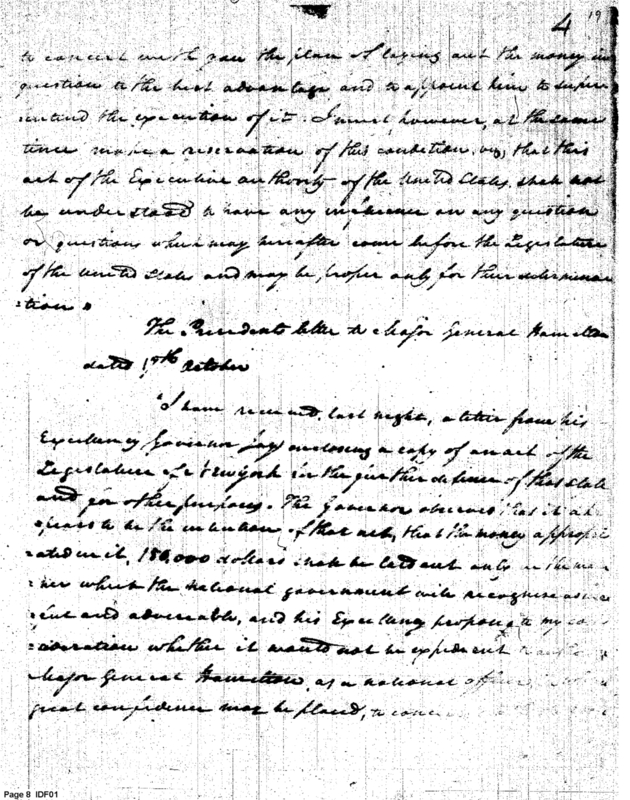 4 19
to concert with you the plan of laying out the money in
question to the best advantage and to appoint him to super
=intend the execution of it. I must, however, at the same
time make a reservation of this condition, viz, that this
act of the Executive authority of the United States, shall not
be understood to have any influence on any question
or questions which may hereafter come before the Legislature
of the United States and may be, proper only for their determina
=tion"
The Presidents letter to Major General Hamilton
dated October
"I have received, last night, a letter from his
Excellency Governor Jay enclosing a copy of an act of the
Legislature of New York for the further defence of this state
and for other purposes. The Governor observes that it ap
=pears to be the intention of that act, that the money appropri
=ated in it, 150,000 dollars shall be laid out only in the man
=ner which the national government will recognise as suffi
=cient and adviseable, and his Excellency proposes to my con
=sideration whether it would not be expedient to
Major General Hamilton, as a national officer, in
great confidence may be placed, to concert
Page 8 IDF01